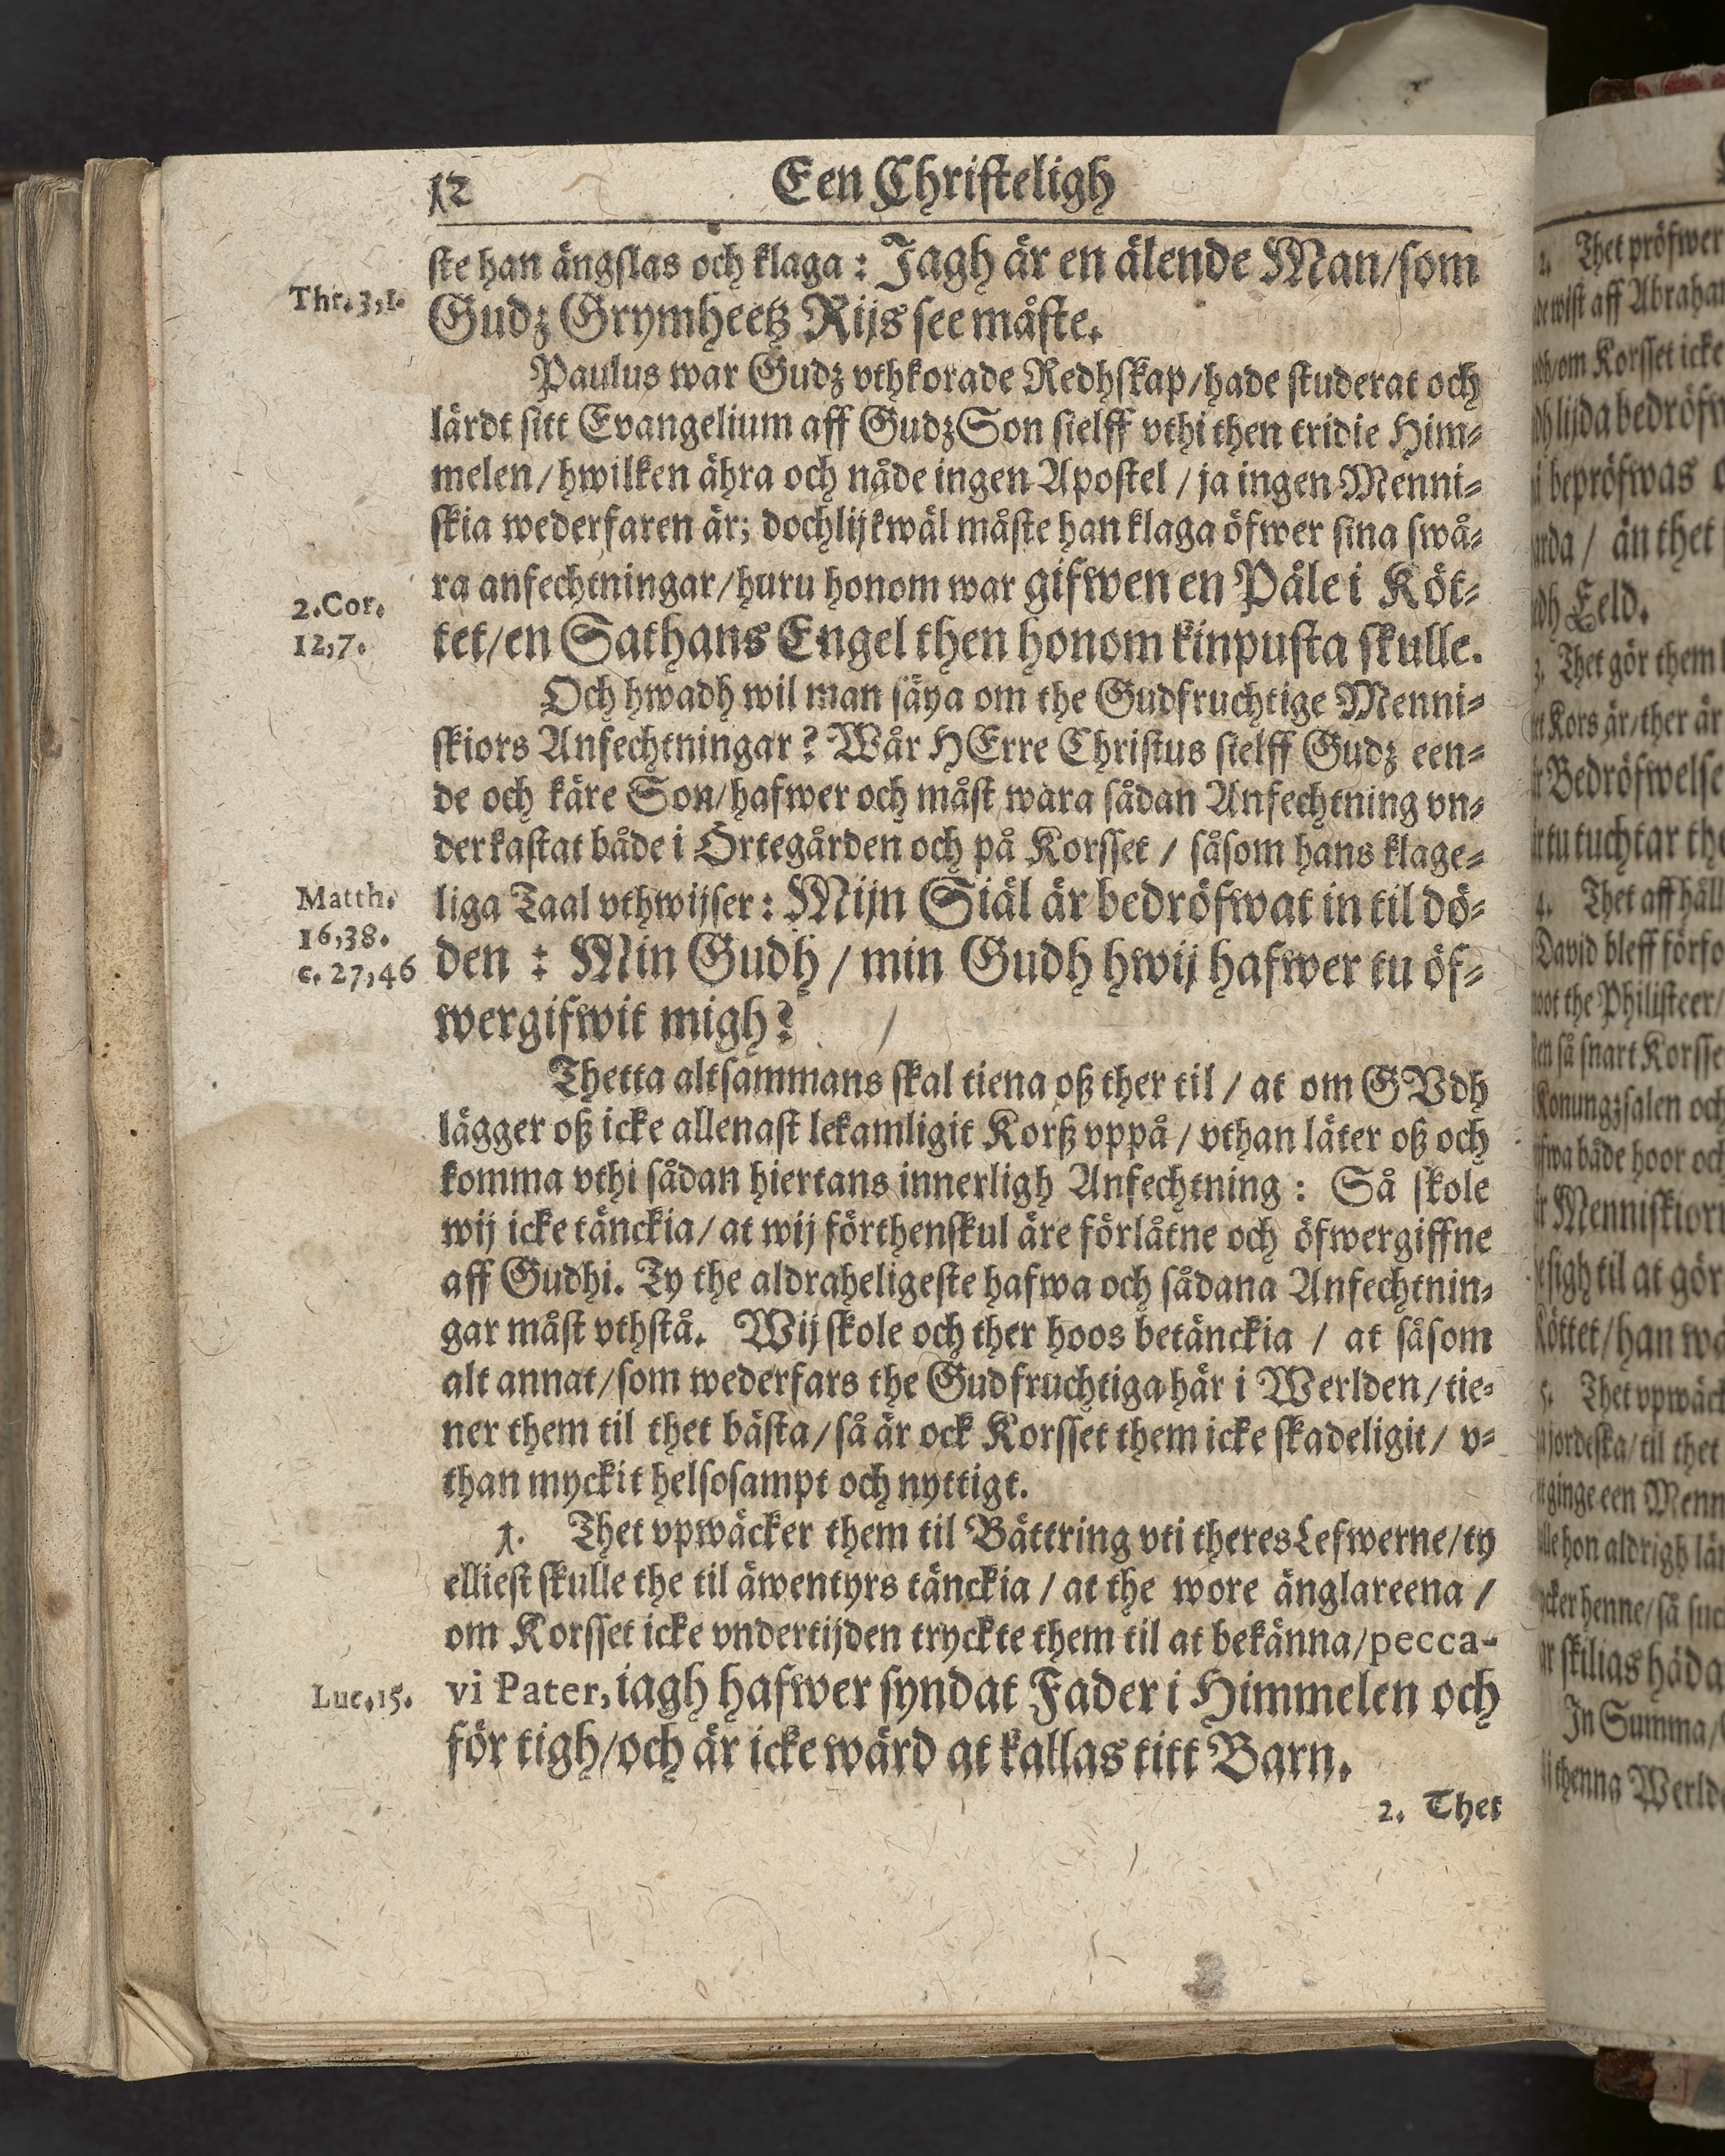 12 Een Christeligh
ste han ängslas och klaga: Jagh är en älende Man/som
Thr. 3,1.
Gudz Grymheetz Rijs see måste.
Paulus war Gudz vthkorade Redhskap/hade studerat och
lärdt sitt Evangelium aff Gudz Son sielff vthi then tridie Him-
melen/hwilken ähra och nåde ingen Apostel/ja ingen Menni-
skia wederfaren är; dochlijkwäl måste han klaga öfwer sina swå-
ra anfechtningar/huru honom war gifwen en Påle i Köt-
2. Cor.
12,7.
tet/en Sathans Engel then honom kinpusta skulle.
Och hwadh wil man säya om the Gudfruchtige Menni-
skiors Anfechtningar? Wår HErre Christus sielff Gudz een-
de och käre Son/hafwer och måst wara sådan Anfechtning vn-
derkastat både i Örtegården och på Korsset/såsom hans klage-
liga Taal vthwijser: Mijn Siäl är bedröfwat in til dö-
Matth.
16,38.
c. 27,46
den: Min Gudh/min Gudh hwij hafwer tu öf-
wergifwit migh?
Thetta altsammans skal tiena oß ther til/at om GVdh
lägger oß icke allenast lekamligit Korß vppå/vthan läter oß och
komma vthi sådan hiertans innerligh Anfechtning: Så skole
wij icke tänckia/at wij förthenskul äre förlåtne och öfwergiffne
aff Gudhi. Ty the aldraheligeste hafwa och sådana Anfechtnin-
gar måst vthstå. Wij skole och ther hoos betänckia/at såsom
alt annat/som wederfars the Gudfruchtiga här i Werlden/tie-
ner them til thet bästa/så är ock Korsset them icke skadeligit/v-
than myckit helsosampt och nyttigt.
1. Thet vpwäcker them til Bättring vti theres Lefwerne/ty
elliest skulle the til äwentyrs tänckia/at the wore änglareena/
om Korsset icke vndertijden tryckte them til at bekänna/pecca-
Luc. 15.
vi Pater, iagh hafwer syndat Fader i Himmelen och
för tigh/och är icke wärd at kallas titt Barn.
2. Thet